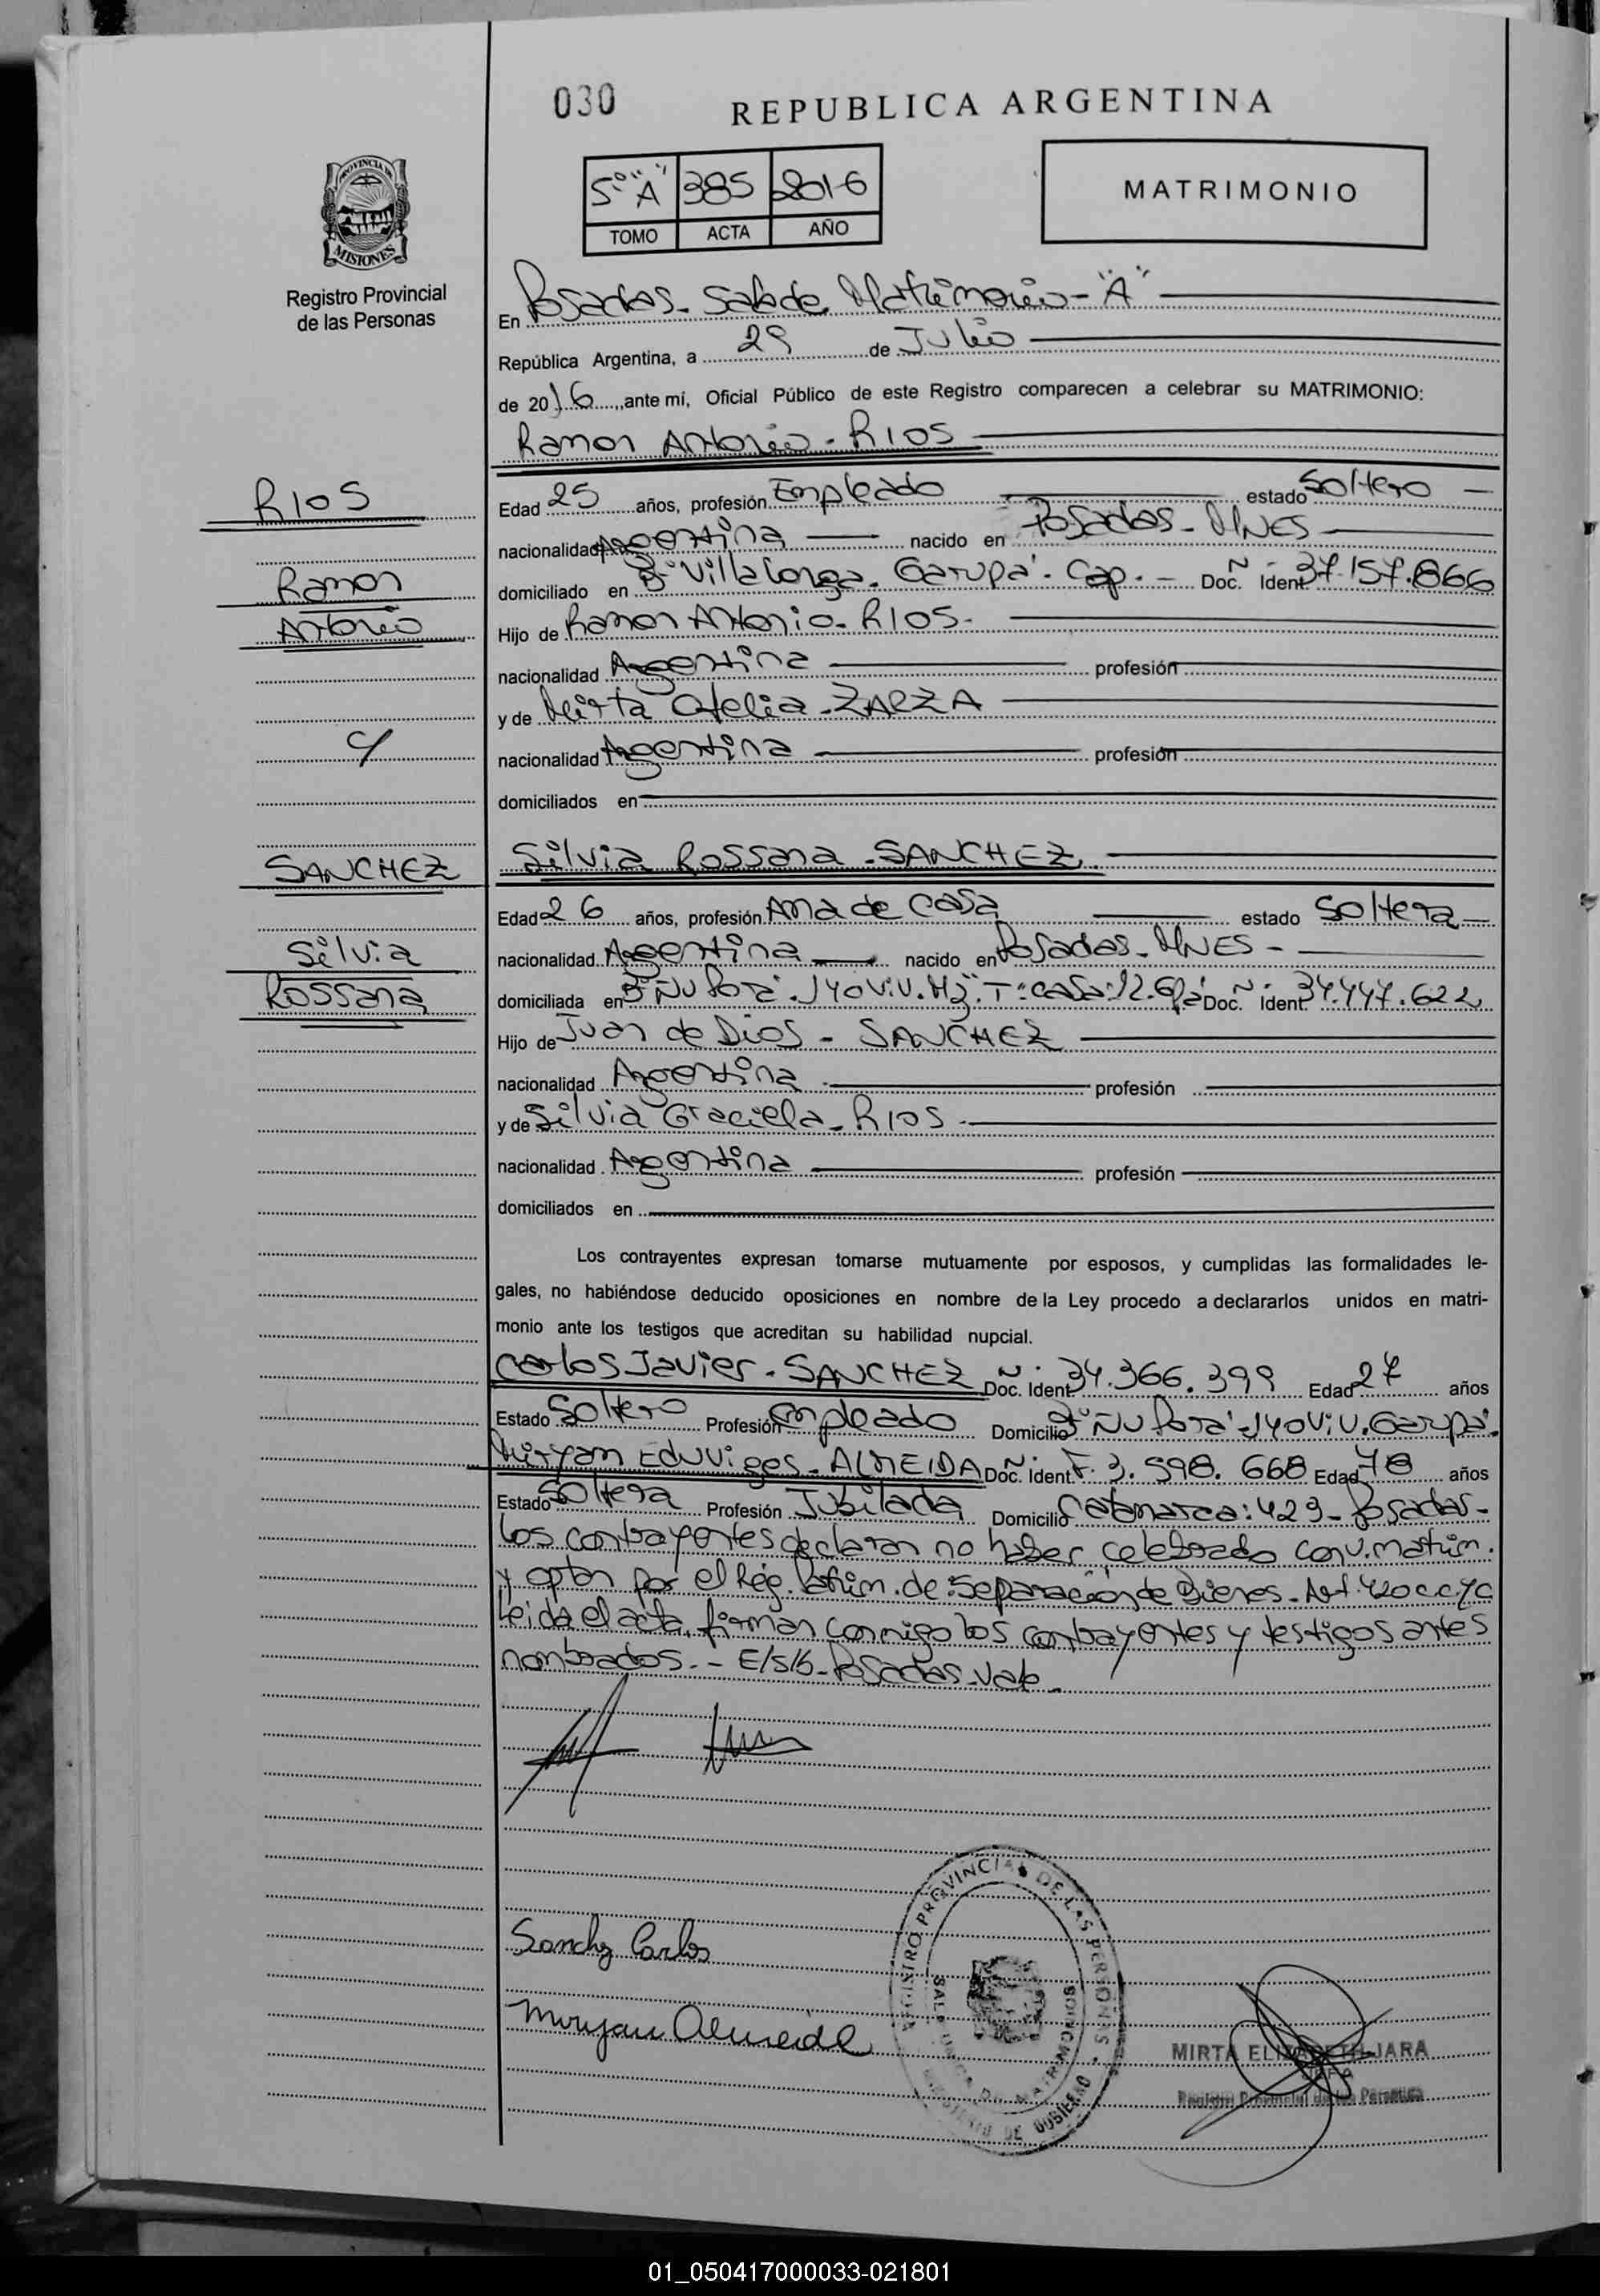 030
REPUBLICA ARGENTINA
5° "A" 385 2016
TOMO ACTA AÑO
MATRIMONIO
PROVINCIA DE
MISIONES
Registro Provincial
de las Personas
En Posadas - Sala de Matrimonio - "A"
República Argentina, a 29 de Julio
de 2016, ante mí, Oficial Público de este Registro comparecen a celebrar su MATRIMONIO:
Ramon Antonio - RIOS
RIOS
Edad 25 años, profesión Empleado estado Soltero
nacionalidad Argentina nacido en Posadas - MNES
Ramon
domiciliado en B° Villalonga - Garupá - Cap. - Doc. Ident. N° 37.157.866
Antonio
Hijo de Ramon Antonio - RIOS -
nacionalidad Argentina profesión
y de Mirta Ofelia - ZARZA
c/
nacionalidad Argentina profesión
domiciliados en
SANCHEZ
Silvia Rossana - SANCHEZ
Edad 26 años, profesión Ama de casa estado Soltera
Silvia
nacionalidad Argentina nacido en Posadas - MNES -
Rossana
domiciliada en B° Ñu Porá - 140 Viv. Mz: "T": casa: 12 - Gpá Doc. Ident. N° 34.447.622
Hijo de Juan de Dios - SANCHEZ
nacionalidad Argentina profesión
y de Silvia Graciela - RIOS -
nacionalidad Argentina profesión
domiciliados en
Los contrayentes expresan tomarse mutuamente por esposos, y cumplidas las formalidades le-
gales, no habiéndose deducido oposiciones en nombre de la Ley procedo a declararlos unidos en matri-
monio ante los testigos que acreditan su habilidad nupcial.
Carlos Javier - SANCHEZ Doc. Ident. N° 34.366.399 Edad 27 años
Estado Soltero Profesión Empleado Domicilio B° Ñu Porá - 140 Viv. Garupá.
Miryan Eduviges - ALMEIDA Doc. Ident. N° F. 3.598.668 Edad 78 años
Estado Soltera Profesión Jubilada Domicilio Catamarca: 429 - Posadas -
Los contrayentes declaran no haber celebrado conv. matrim.
y optan por el Rég. Patrim. de: Separación de Bienes - Art. 420 CCYC
Leida el acta, firman conmigo los contrayentes y testigos antes
nombrados. - E/s/b - Posadas - Vale -
Sanchz Carlos
Miryan Almeida
REGISTRO PROVINCIAL DE LAS PERSONAS
SALA UNICA DE MATRIMONIOS
MINISTERIO DE GOBIERNO
MIRTA ELIZABETH JARA
JEFA
Registro Provincial de las Personas
01_050417000033-021801